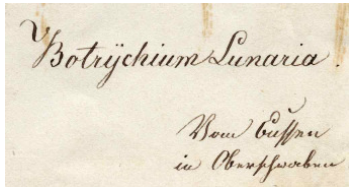 Botrÿchium Lunaria.
Vom Bussen
in Oberschwaben